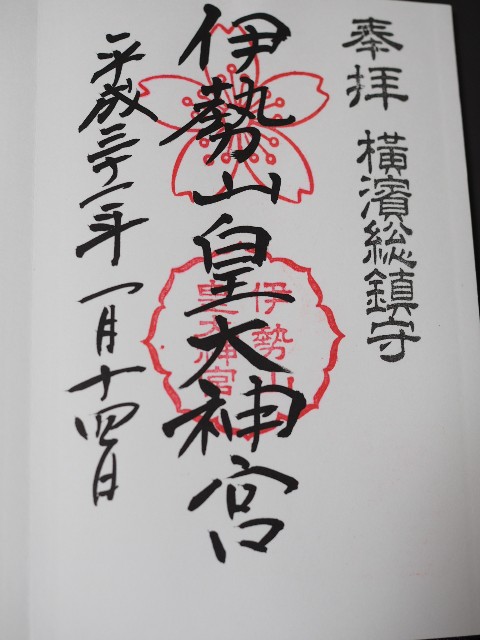 奉拝 橫濱総鎮守
伊勢山皇大神宮
伊勢山
皇大神宮
平成三十一年一月十四日